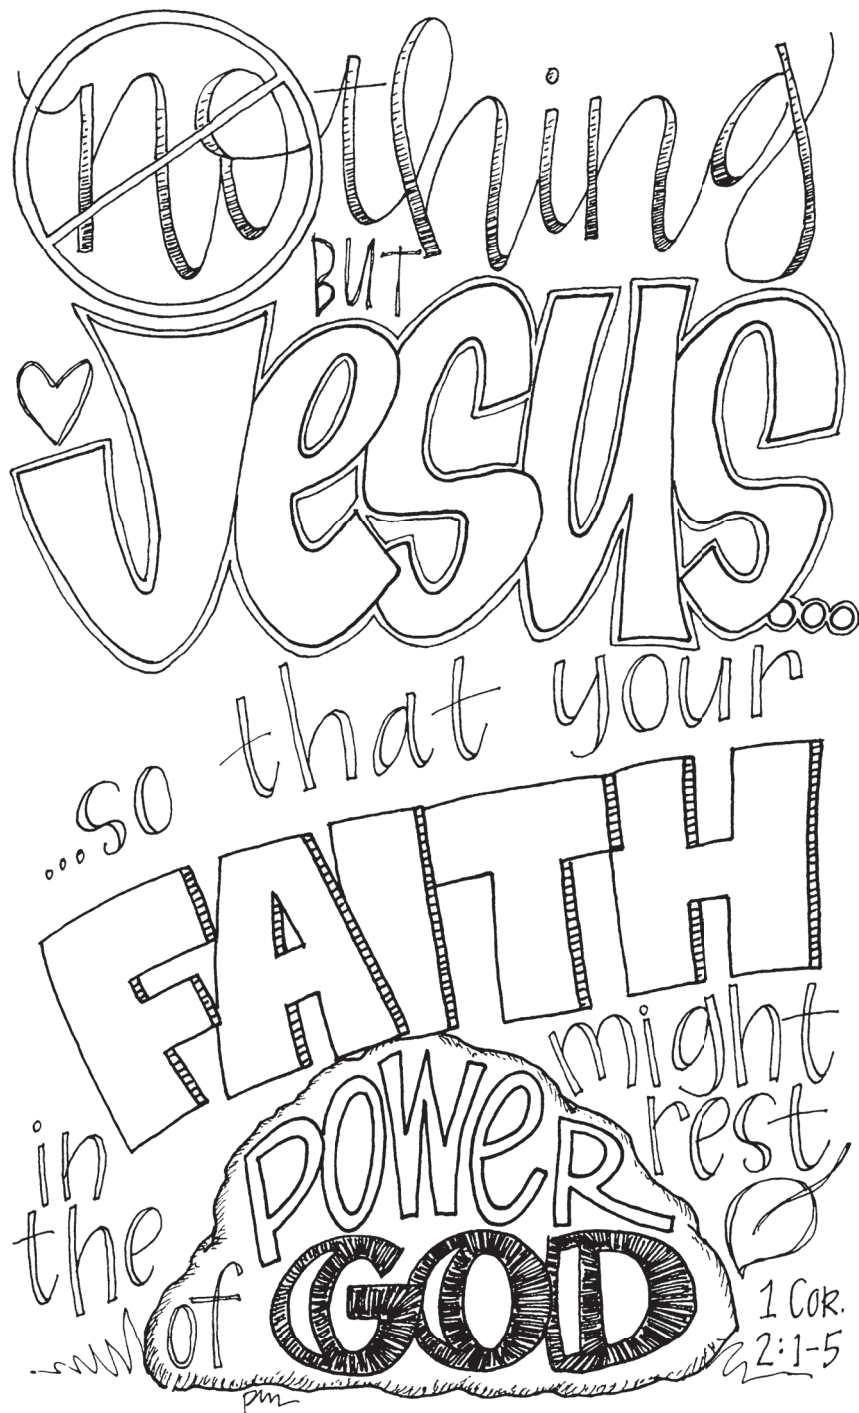 nothing
BUT
Jesus...
...so that your
FAITH
might
rest
in
the
POWER
of GOD
1 COR.
2:1-5
pm